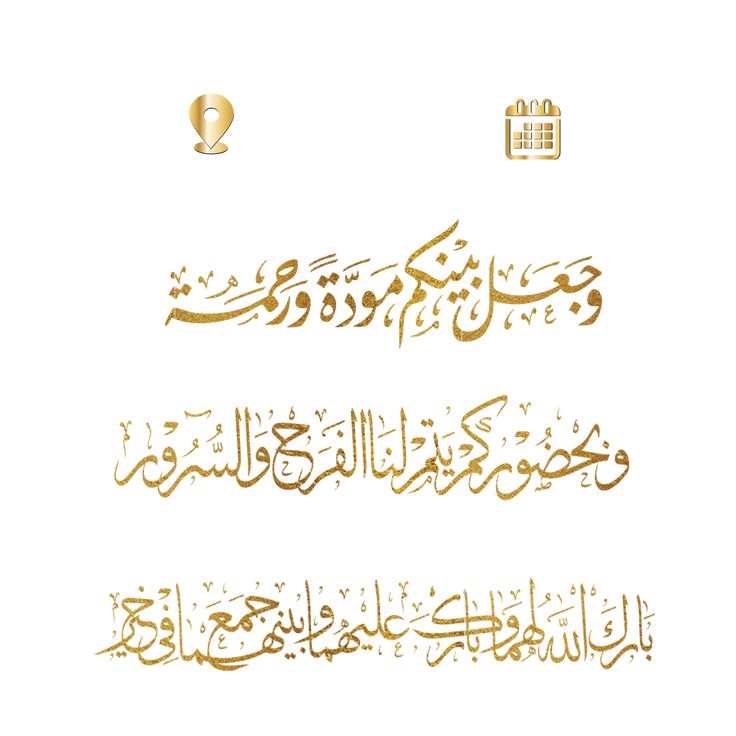 وجعل بينكم مَوَدَّةً وَرحمة
وبحضُوركم يَتم لنا الفَرَح وَالسُّرُور
بَارَكَ اللَّهُ لهما وبارك عليهما وجمع بينهما في خير